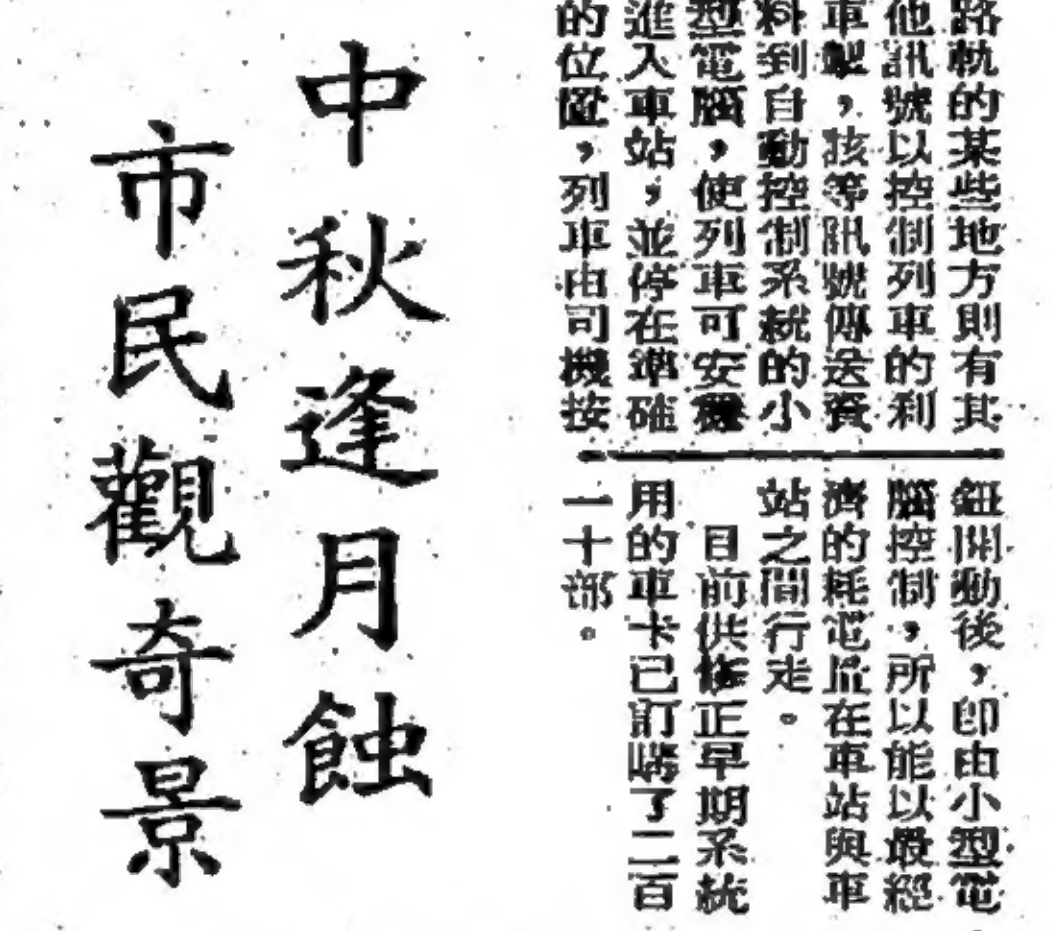 路軌的某些地方則有其
他訊號以控制列車的利
車製，該等訊號傳送資
料到自動控制系統的小
型電腦，使列車可安穩
進入車站，並停在準確
的位置，列車由司機按
鈕開動後，即由小型電
腦控制，所以能以最經
濟的耗電量在車站與車
站之間行走。
目前供修正早期系統
用的車卡已訂購了二百
一十部。
中秋逢月蝕
市民觀奇景